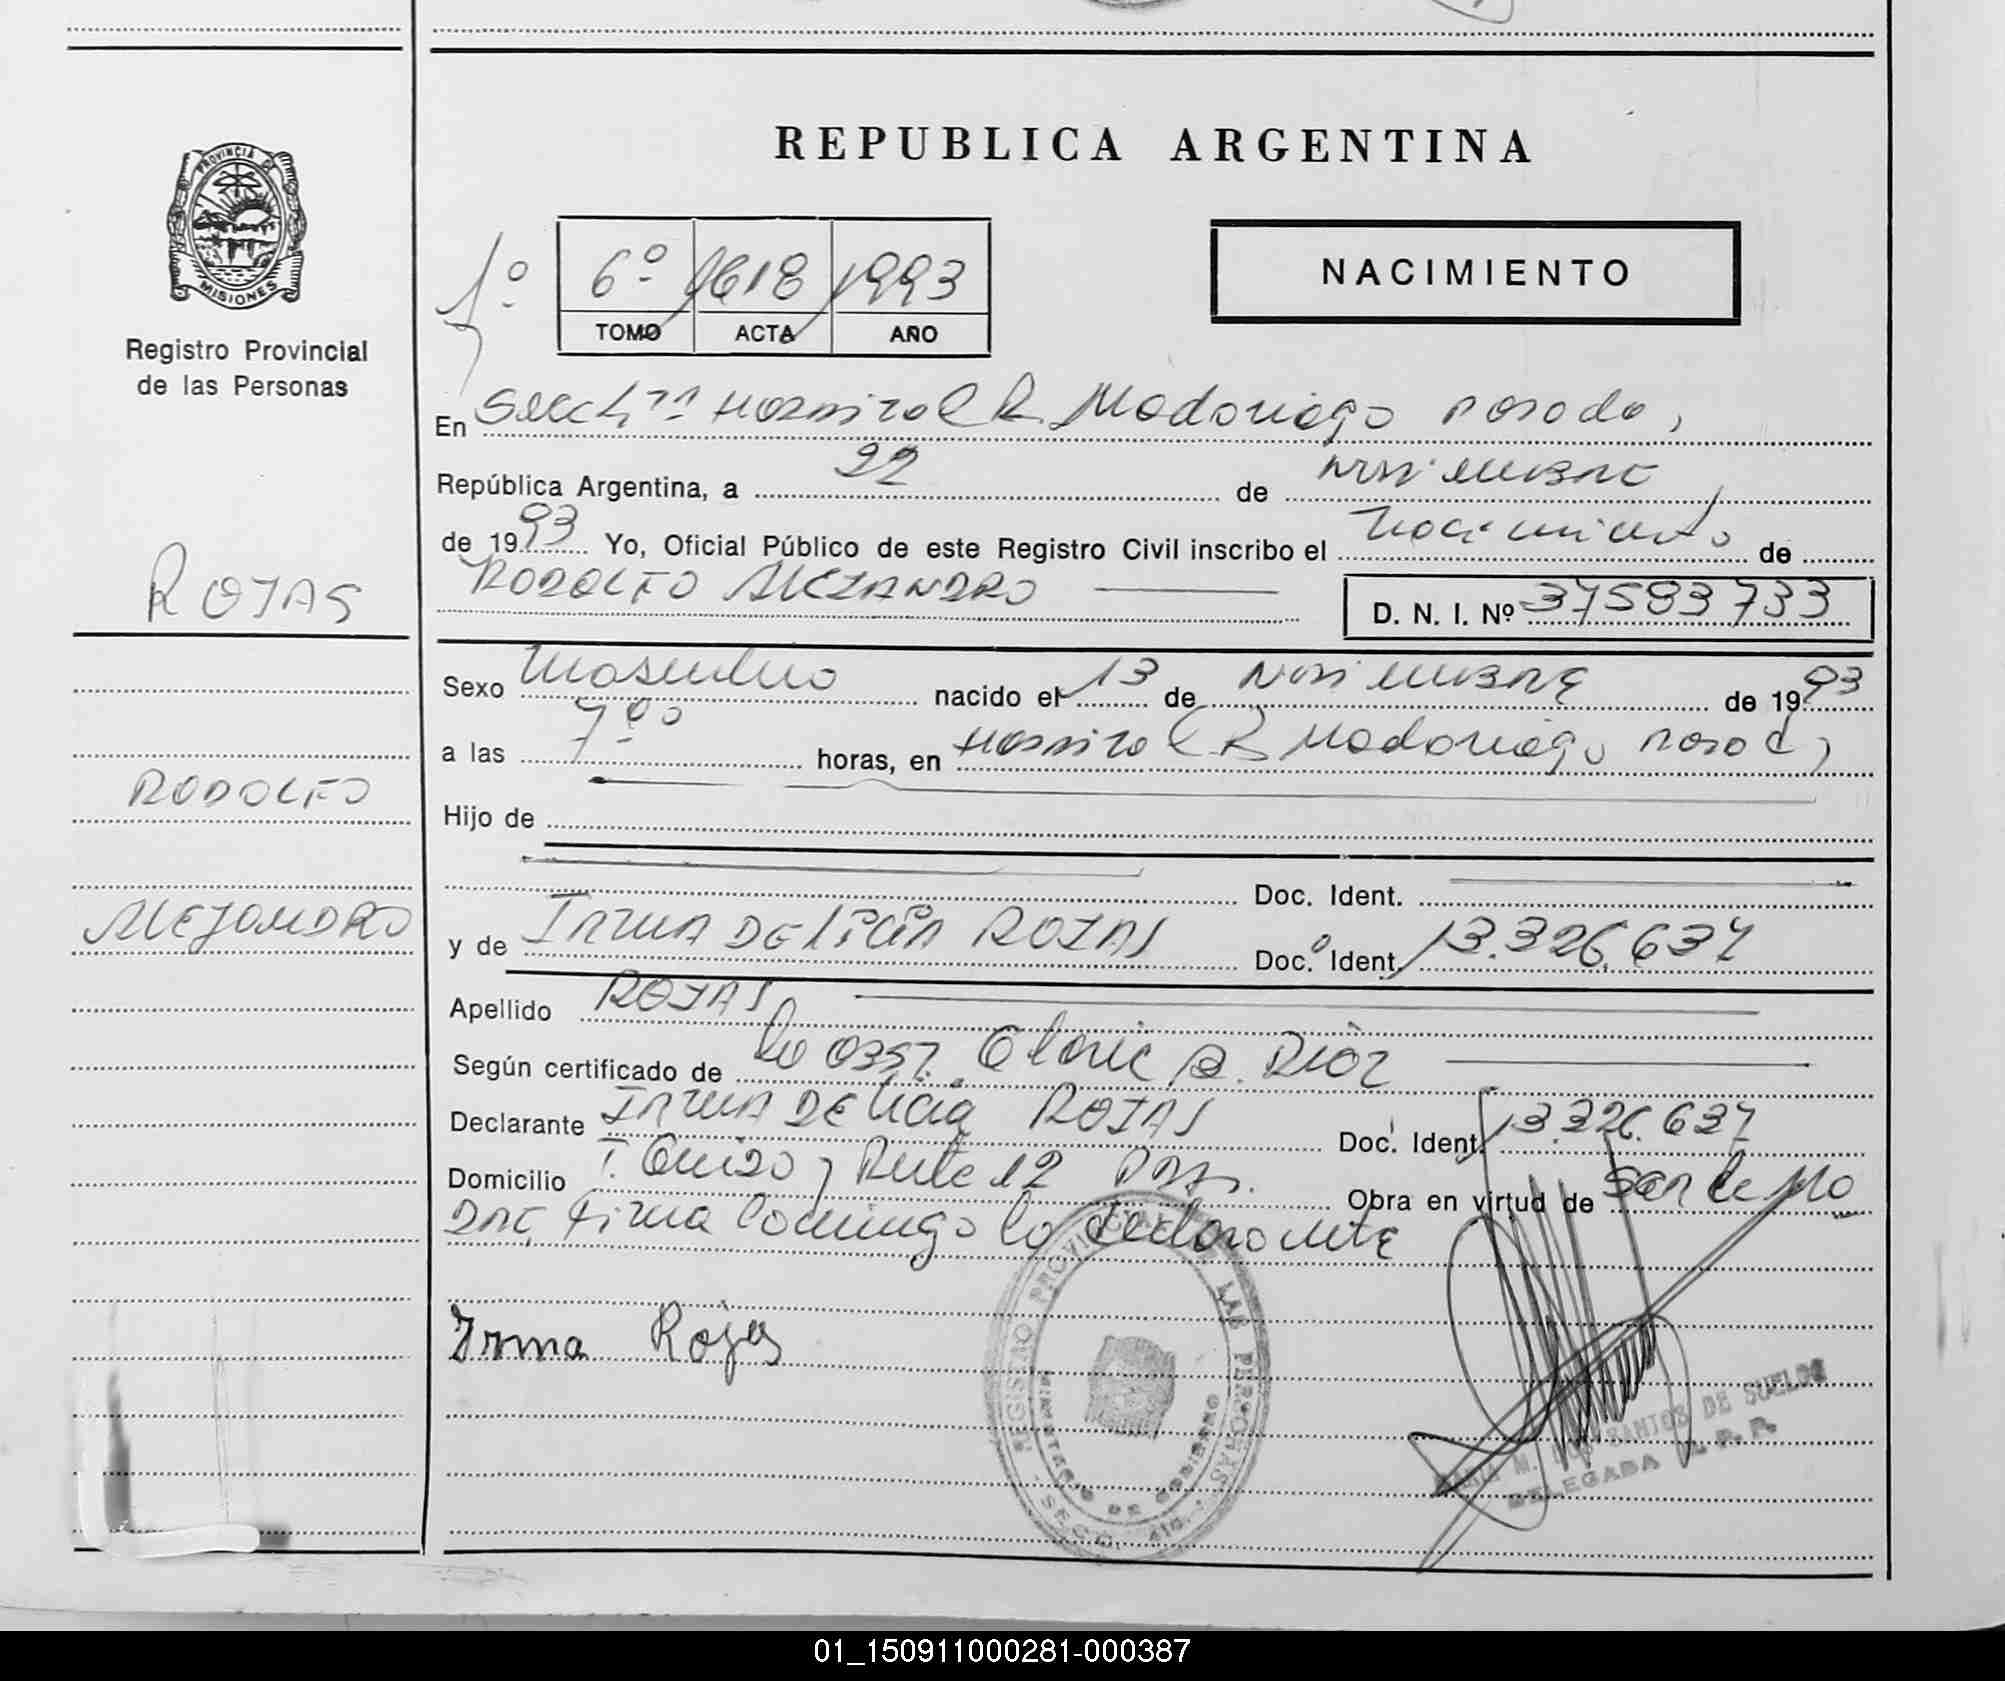 REPUBLICA ARGENTINA
PROVINCIA DE
MISIONES
Registro Provincial
de las Personas
1º
6º 1618 1993
TOMO ACTA AÑO
NACIMIENTO
En Secc 4ta Hospital R. Madariaga Posadas
República Argentina, a 22 de Noviembre
de 1993 Yo, Oficial Público de este Registro Civil inscribo el Nacimiento de
RODOLFO ALEJANDRO
D. N. I. Nº 37583733
ROJAS
Sexo Masculino nacido el 13 de Noviembre de 1993
a las 7 00 horas, en Hospital R Madariaga Posad
RODOLFO
Hijo de
Doc. Ident.
ALEJANDRO
y de IRMA DELICIA ROJAS Doc. Ident. 13.326.637
Apellido ROJAS
Según certificado de Gloria Díaz
Declarante IRMA DELICIA ROJAS Doc. Ident. 13.326.637
Domicilio Ruta 12 Pdas. Obra en virtud de ser la Me
Dre, firma conmigo la declarante
Irma Rojas
REGISTRO PROVINCIAL DE LAS PERSONAS
MINISTERIO DE GOBIERNO
SECC. 4ta.
M. DOS SANTOS DE SUELDO
DELEGADA R. P. P.
01_150911000281-000387